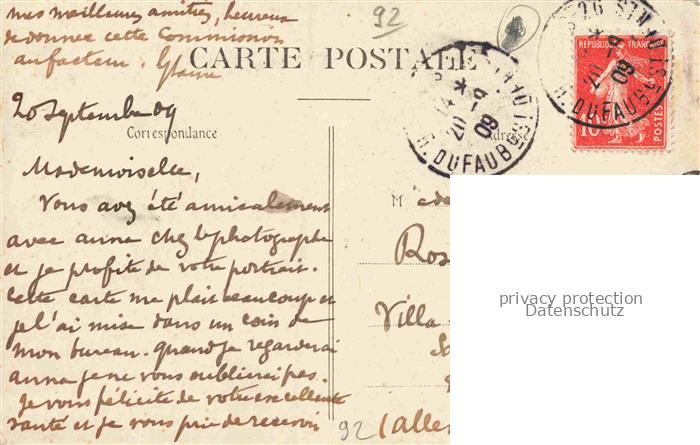 mes meilleures amitiés, heureux
de donner cette Commission
au facteur.
92
CARTE POSTALE
20 Septembre 09
Correspondance
Mademoiselle,
Vous avez été amicalement
avec anna chez le photographe
et je profite de votre portrait.
Cette carte me plait beaucoup et
je l'ai mise dans un coin de
mon bureau. quand je regarderai
anna je ne vous oublierai pas.
Je vous félicite de votre excellente
santé et je vous prie de recevoir
R. DUFAUB
20
09
R. DUFAUB
20
09
REPUBLIQUE FRANC
10
POSTES
M ade
Ros
Villa
(Alle
92
privacy protection
Datenschutz